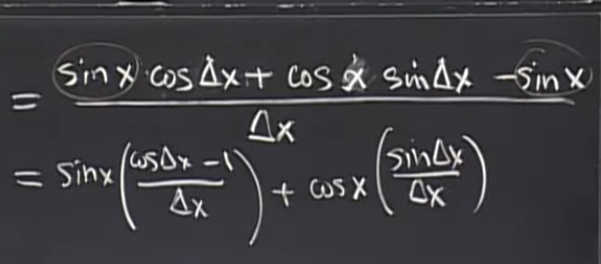 = (sin x cos Δx + cos x sin Δx - sin x) / Δx
= sin x ((cos Δx - 1) / Δx) + cos x (sin Δx / Δx)